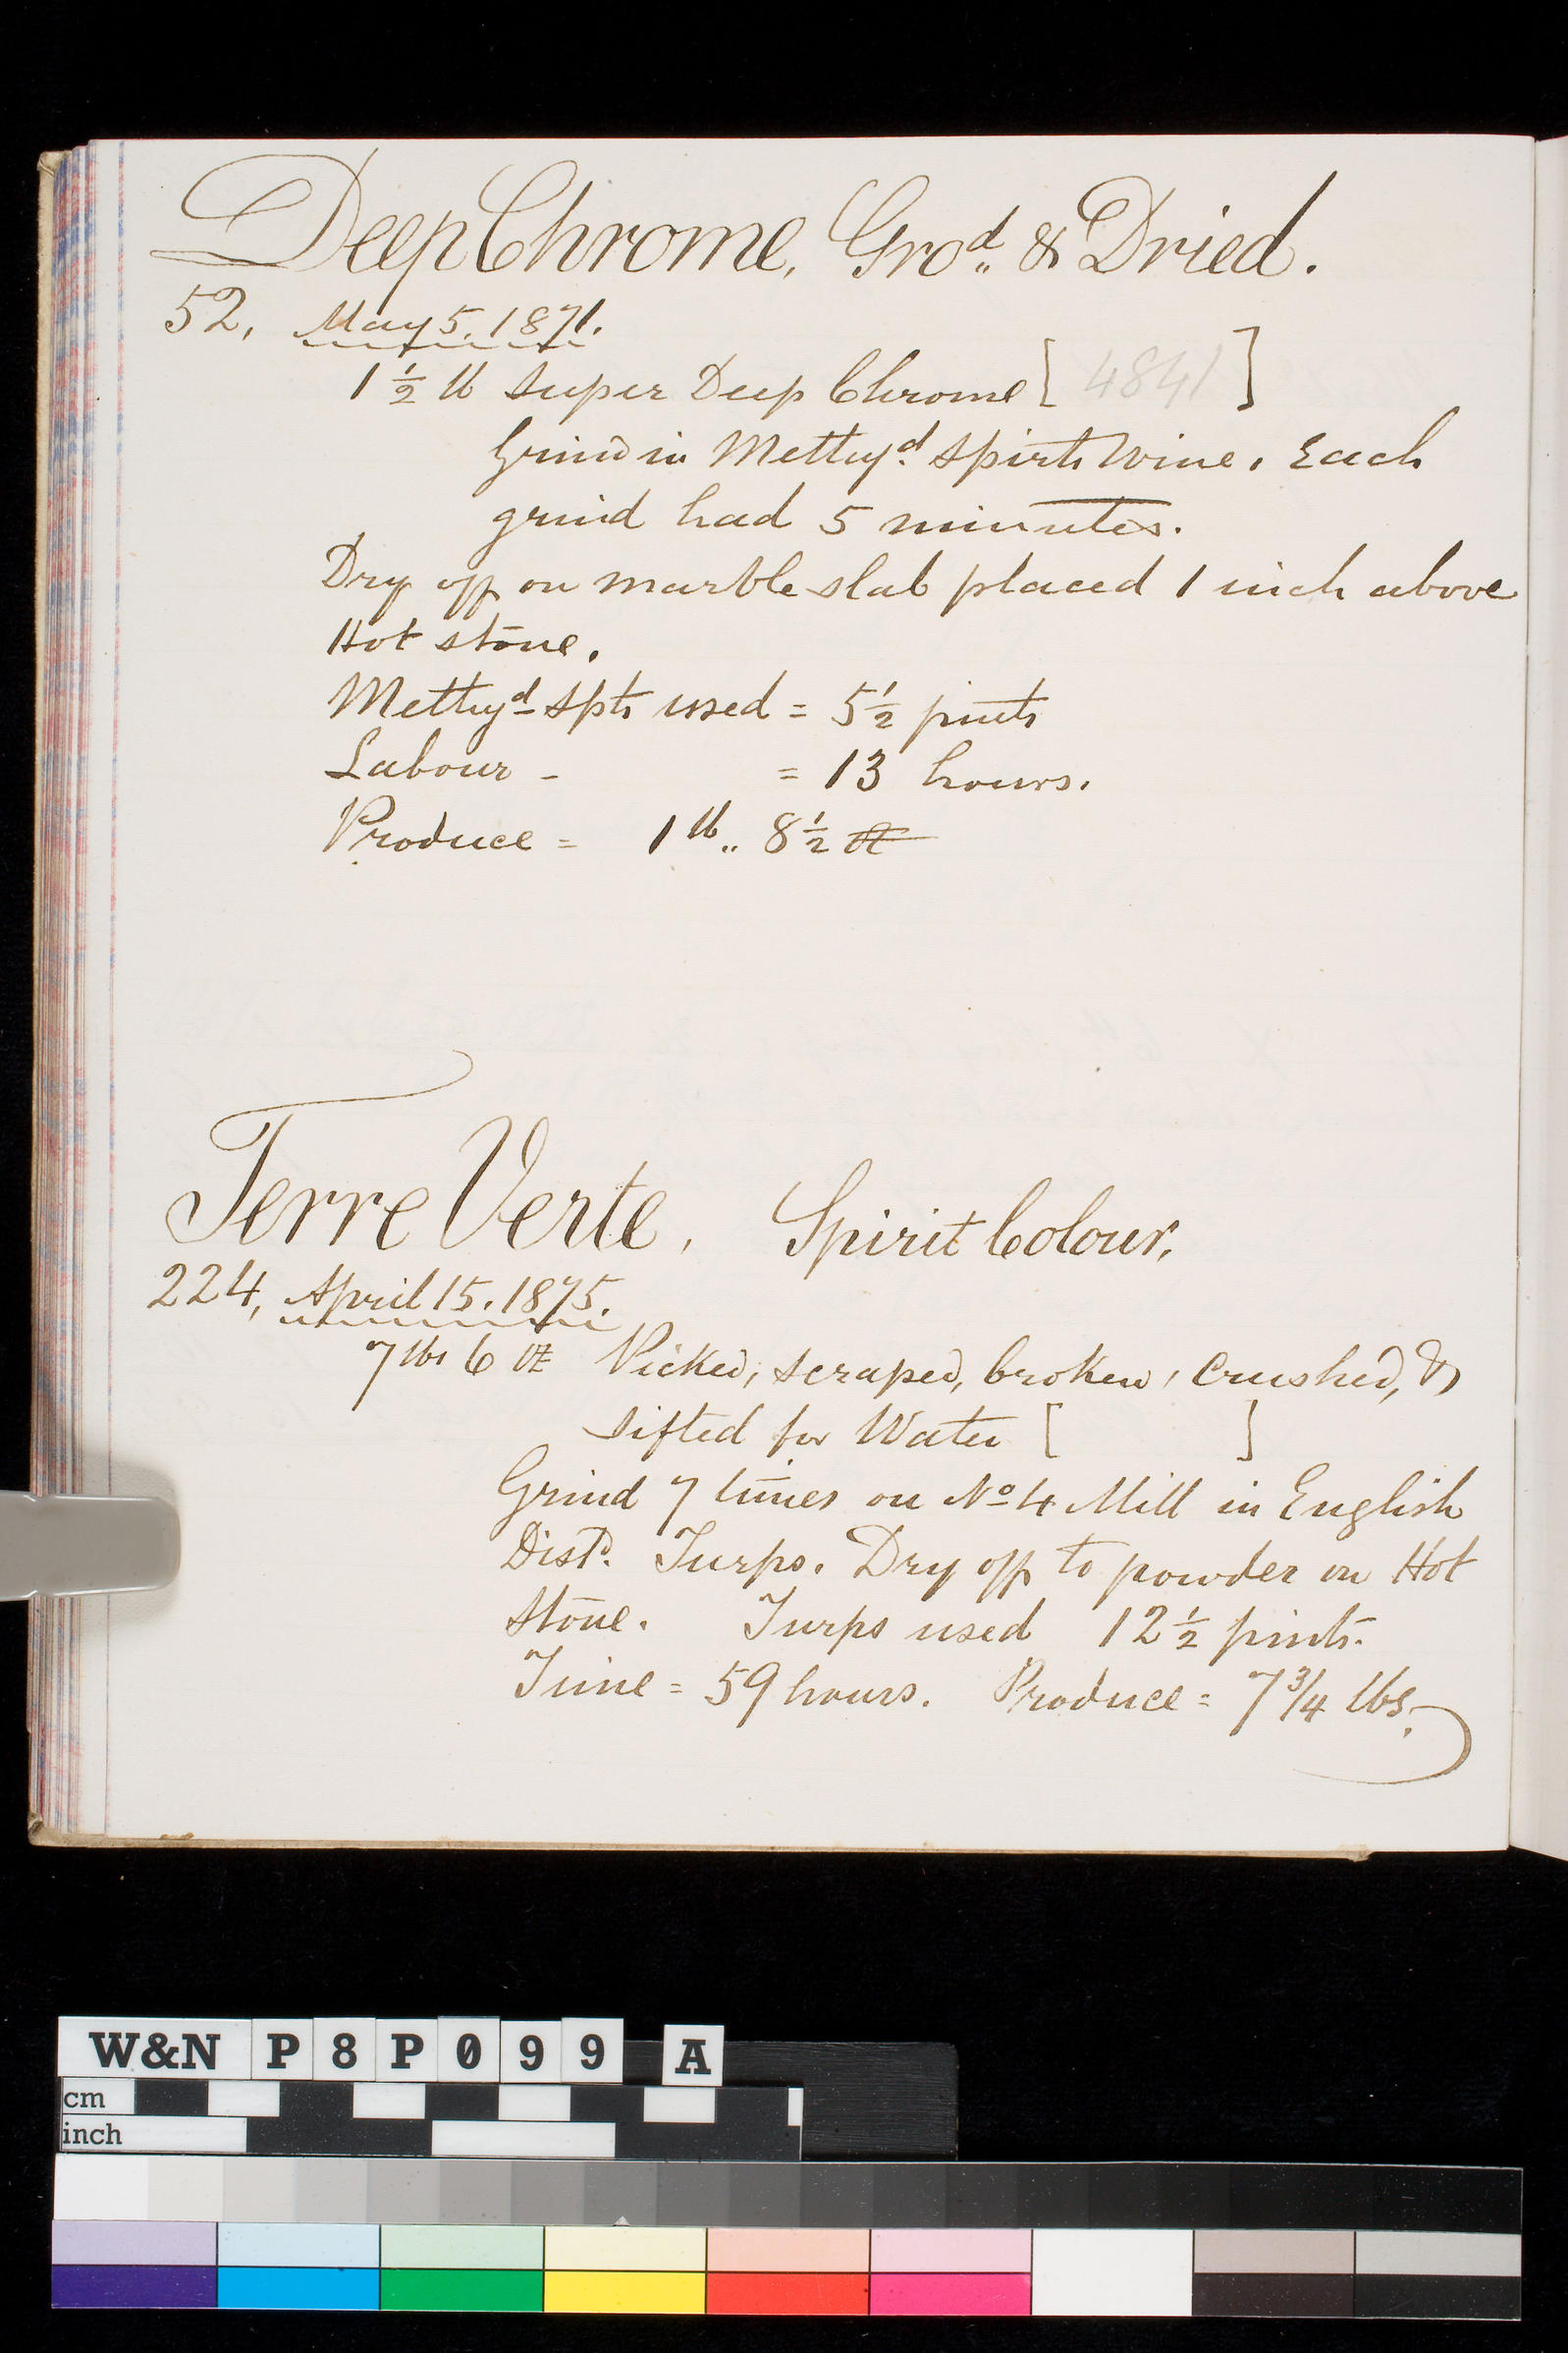 Deep Chrome, Gro.d & Dried.
52, May 5. 1871.
1 ½ lb Super Deep Chrome [ 4841 ]
Grind in Methy.d Spirts Wine, Each
grind had 5 minutes.
Dry off on marble slab placed 1 inch above
Hot stone.
Methyd Spts used = 5 ½ pints
Labour - = 13 hours.
Produce = 1 lb .. 8 ½ oz
Terre Verte, Spirit Colour,
224, April 15. 1875.
7 lbs 6 oz Picked, scraped, broken, Crushed, &
sifted for Water [ ]
Grind 7 times on No 4 Mill in English
Distd. Turps. Dry off to powder on Hot
Stone. Turps used 12 ½ pints.
Time = 59 hours. Produce = 7 3/4 lbs.
W&N P8P099 A
cm
inch